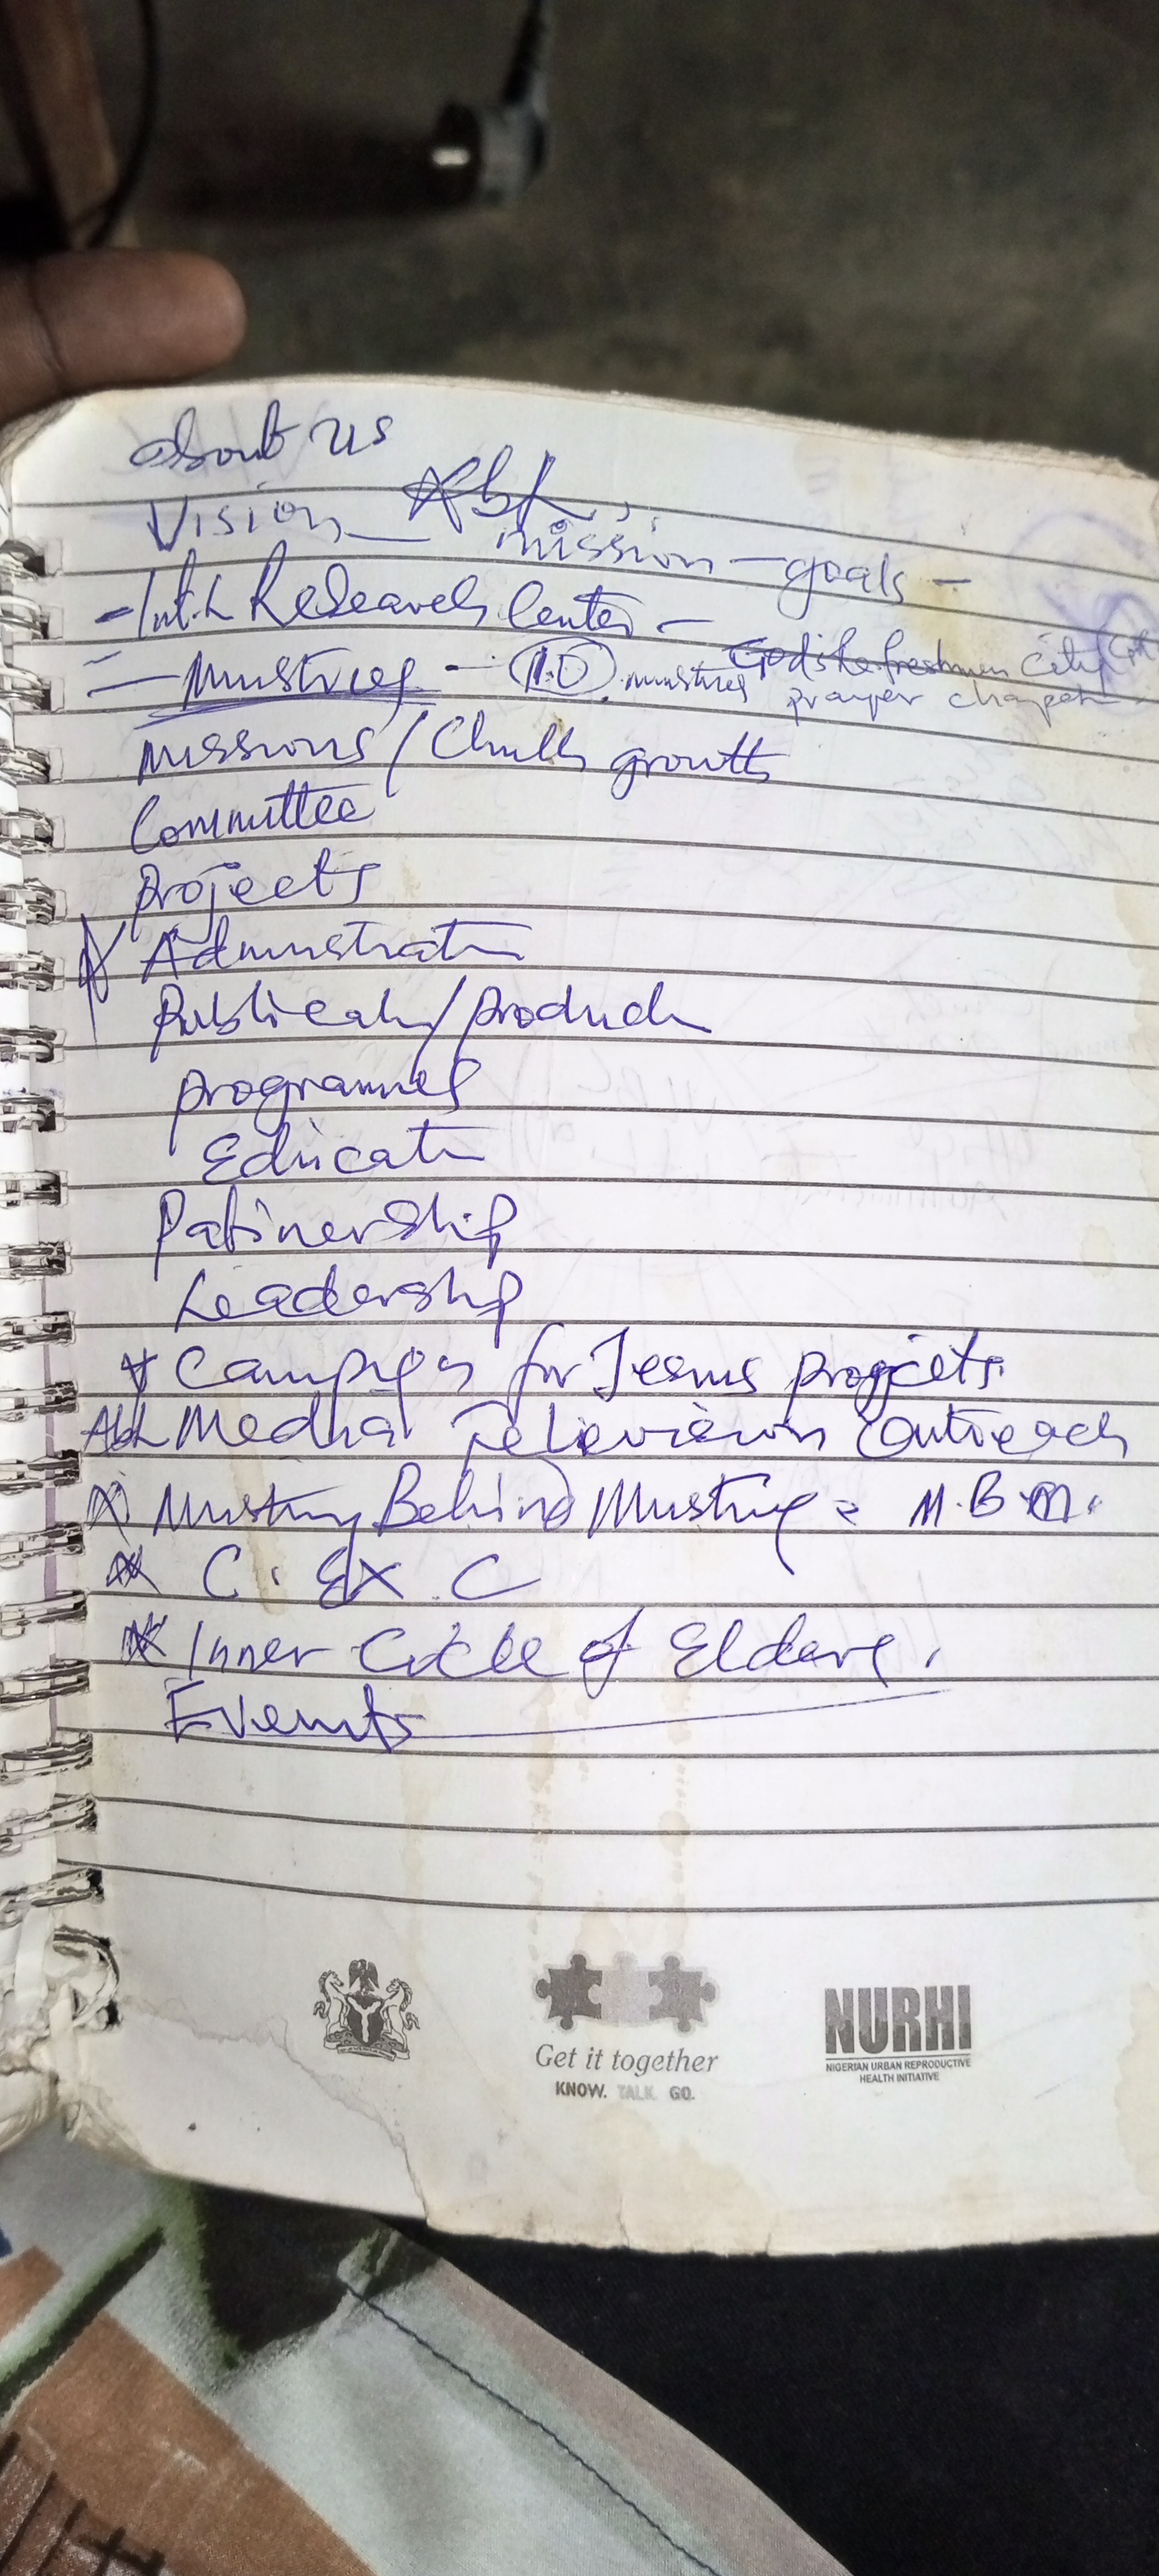 about us
Vision — AbL
mission — goals —
- Int.L Research Center —
= Ministries — 10 ministries Godis the freshmen City
prayer chapel
missions / Church growth
Committee
Projects
Administrat
Publicat / product
programmes
Educat
Patinership
Leadership
Campus for Jesus projects
AbL Media Television Outreach
Ministry Behind Ministry = M.B.M.
C. EX. C
Inner Circle of Elders.
Events
Get it together
KNOW. TALK. GO.
NURHI
NIGERIAN URBAN REPRODUCTIVE
HEALTH INITIATIVE